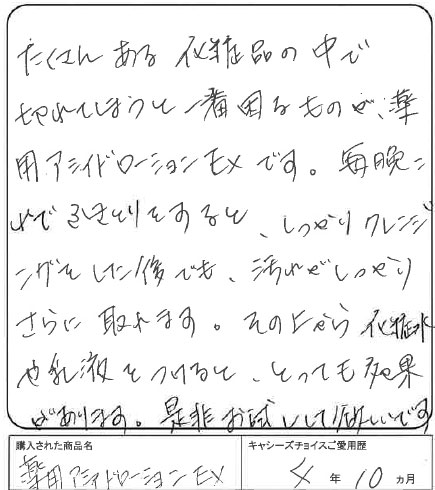 たくさんある化粧品の中で
切れてしまうと一番困るものが、薬
用アシィドローションEXです。毎晩こ
れでふきとりをすると、しっかりクレンジ
ングをした後でも、汚れがしっかり
さらに取れます。その上から化粧水
や乳液をつけると、とっても効果
があります。是非お試しして欲しいです
購入された商品名
キャシーズチョイスご愛用歴
薬用アシィドローションEX
4年10ヵ月